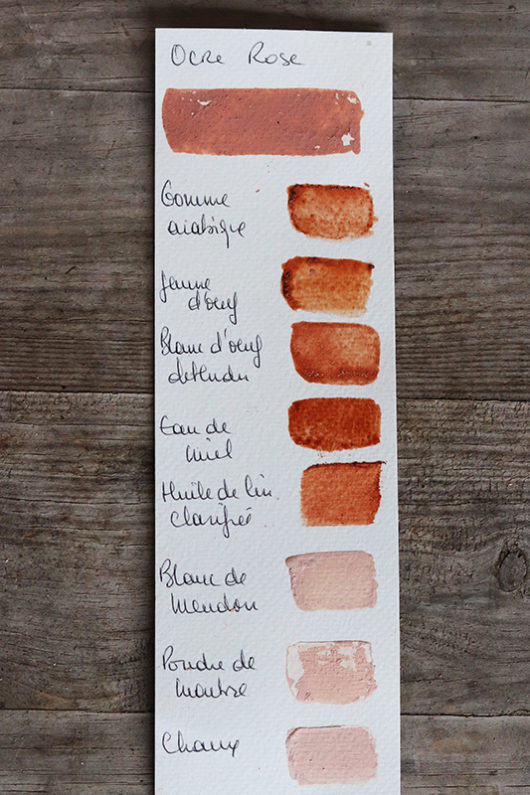 Ocre Rose
Gomme
arabique
Jaune
d'oeuf
Blanc d'oeuf
détendu
Eau de
miel
Huile de lin
clarifiée
Blanc de
Meudon
Poudre de
marbre
Chaux